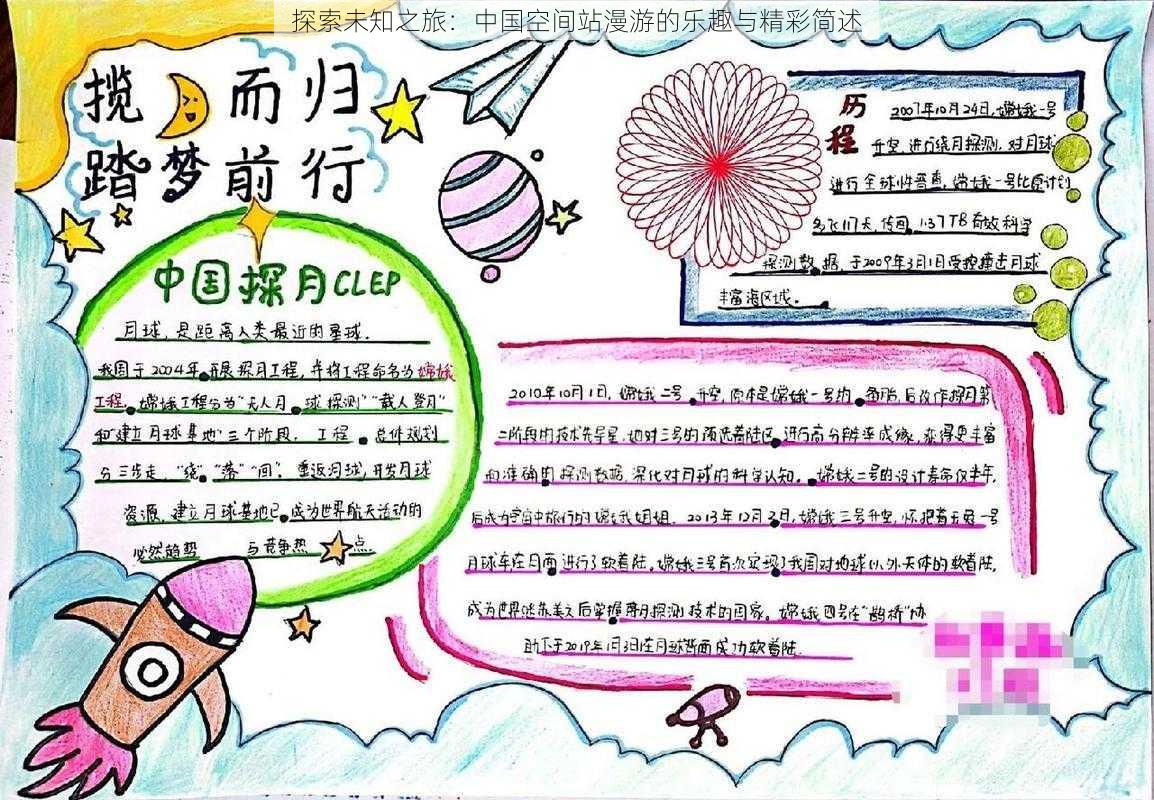 探索未知之旅：中国空间站漫游的乐趣与精彩简述
揽 而归
踏梦前行
历程
2007年10月24日，嫦娥一号
升空，进行绕月探测，对月球
进行全球性普查，嫦娥一号比原计划
多飞117天，传回1.37TB有效科学
探测数据，于2009年3月1日受控撞击月球
丰富海区域。
中国探月CLEP
月球，是距离人类最近的星球。
我国于2004年开展探月工程，并将工程命名为嫦娥
工程，嫦娥工程分为"无人月球探测""载人登月"
和"建立月球基地"三个阶段。工程总体规划
分三步走，"绕""落""回"。重返月球，开发月球
资源，建立月球基地已成为世界航天活动的
必然趋势 与竞争热点.
2010年10月1日，嫦娥二号升空，原本是嫦娥一号的备胎，后改作探月第
二阶段的技术先导星，她对三号的预选着陆区进行高分辨率成像，获得更丰富
和准确的探测数据，深化对月球的科学认知。嫦娥二号的设计寿命仅半年，
后成为宇宙中旅行的嫦娥姐姐。2013年12月2日，嫦娥三号升空，怀抱着玉兔一号
月球车在月面进行了软着陆。嫦娥三号首次实现了我国对地球以外天体的软着陆，
成为世界继苏美之后掌握落月探测技术的国家。嫦娥四号在"鹊桥"协
助下于2019年1月3日在月球背面成功软着陆.